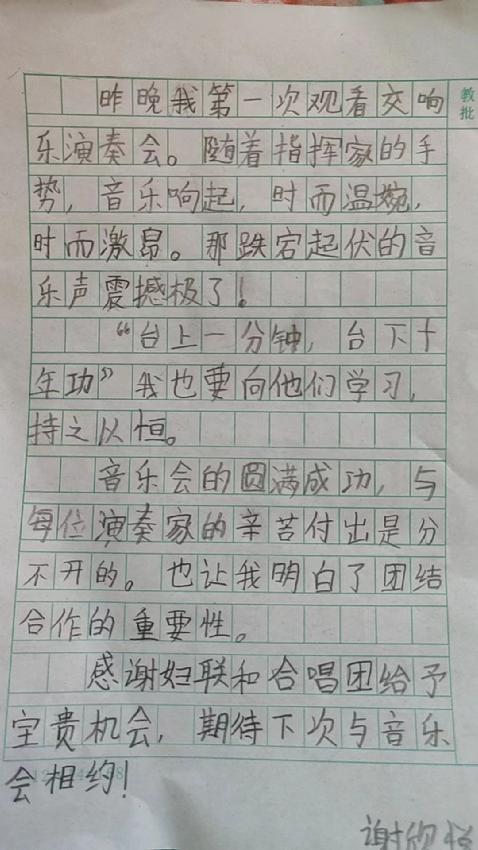 教批
昨晚我第一次观看交响
乐演奏会。随着指挥家的手
势，音乐响起，时而温婉，
时而激昂。那跌宕起伏的音
乐声震撼极了！
“台上一分钟，台下十
年功”我也要向他们学习，
持之以恒。
音乐会的圆满成功，与
每位演奏家的辛苦付出是分
不开的。也让我明白了团结
合作的重要性。
感谢妇联和合唱团给予
宝贵机会，期待下次与音乐
会相约！
谢欣